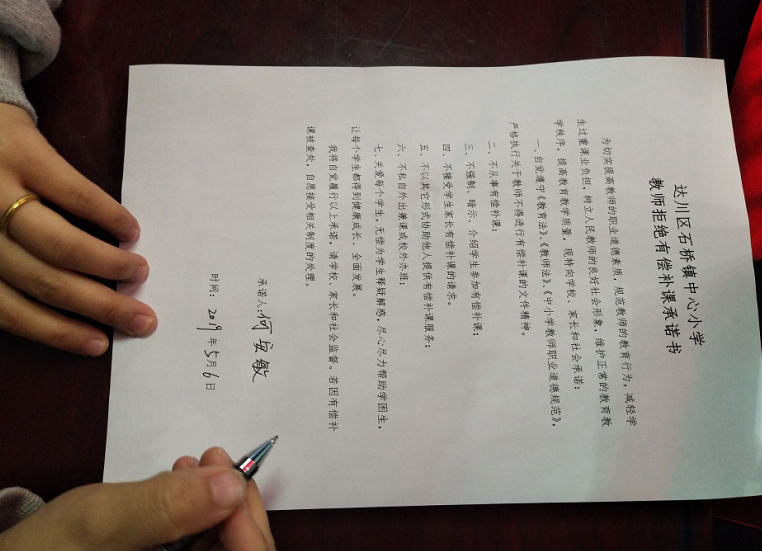 达川区石桥镇中心小学
教师拒绝有偿补课承诺书
为切实提高教师的职业道德素质，规范教师的教育行为，减轻学
生过重课业负担，树立人民教师的良好社会形象，维护正常的教育教
学秩序，提高教育教学质量，现特向学校、家长和社会承诺：
一、自觉遵守《教育法》、《教师法》、《中小学教师职业道德规范》，
严格执行关于教师不得进行有偿补课的文件精神。
二、不从事有偿补课；
三、不强制、暗示、介绍学生参加有偿补课；
四、不接受学生家长有偿补课的请求。
五、不以其它形式协助他人提供有偿补课服务；
六、不私自外出兼课或校外办班；
七、关爱每个学生，无偿为学生释疑解惑，尽心尽力帮助学困生，
让每个学生都得到健康成长、全面发展。
我将自觉履行以上承诺，请学校、家长和社会监督。若因有偿补
课被查处，自愿接受相关制度的处理。
承诺人：何安敏
时间：2019年5月6日